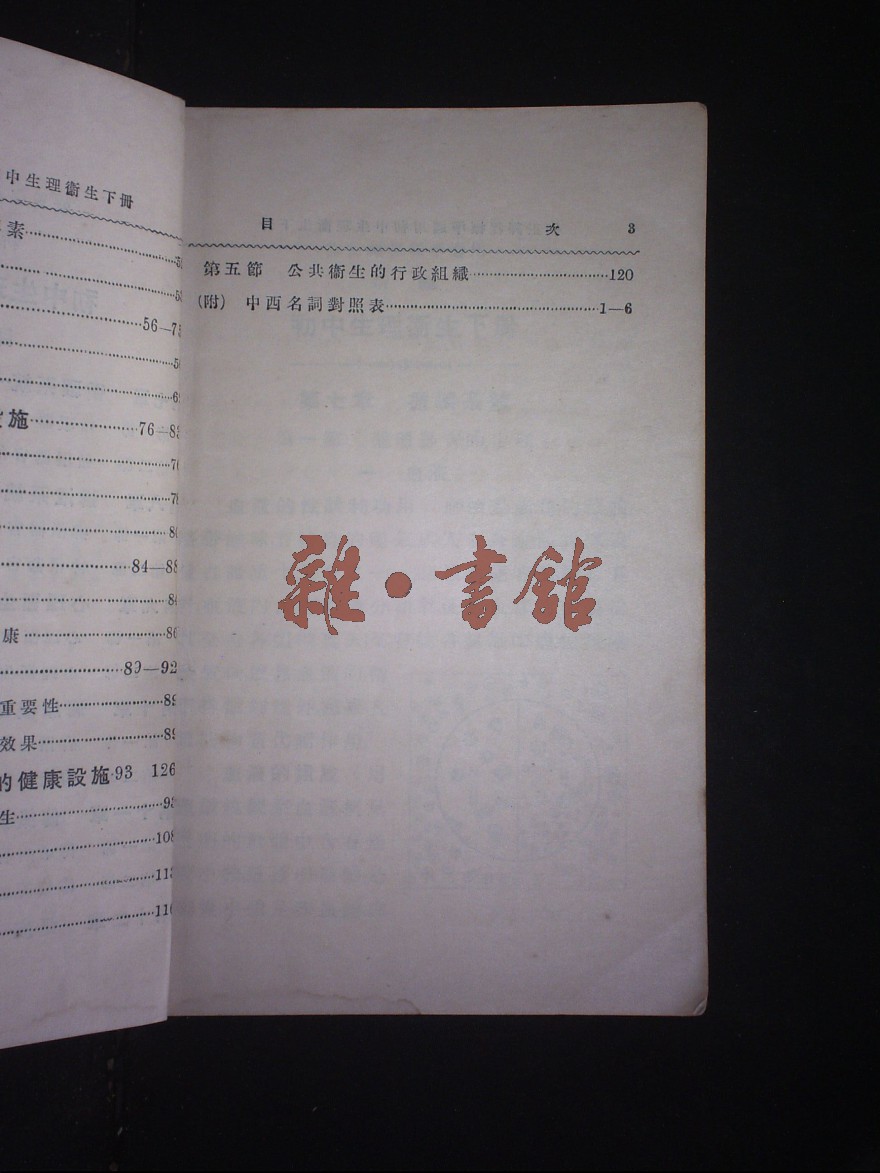 中生理衞生下冊
素
56—7
6
施 76—8
7
7
8
84—88
84
康 86
89—92
重要性 89
效果 89
的健康設施 93 126
生 93
108
113
116
目 次 3
第五節 公共衞生的行政組織 120
(附) 中西名詞對照表 1—6
雜·書館